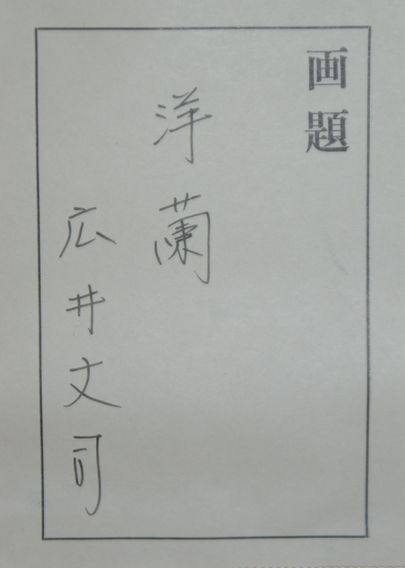 画題
洋蘭
広井文司